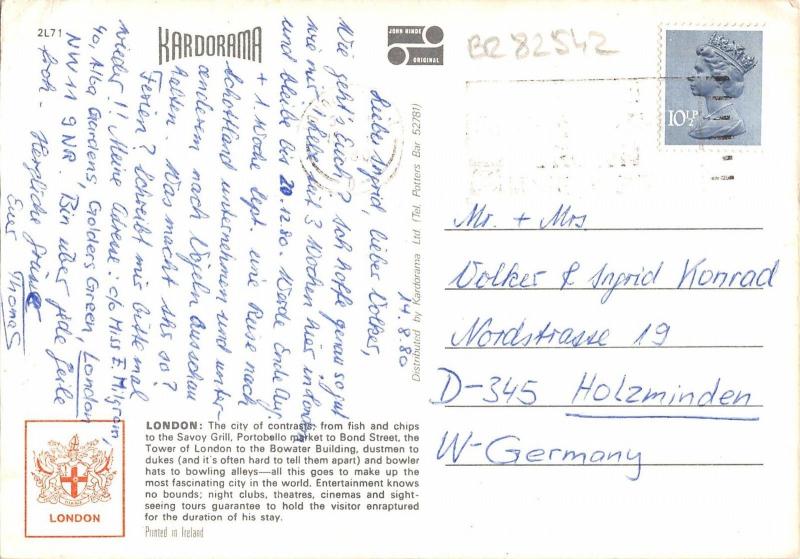 2L71
KARDORAMA
JOHN HINDE
ORIGINAL
BR 82542
10½P
14.8.80
Liebe Ingrid, lieber Volker,
Wie geht's Euch? Ich hoffe genau so gut
wie mir. Lebe seit 3 Wochen hier in London
und bleibe bis 20.12.80. Werde Ende Aug.
+ 1. Woche Sept. eine Reise nach
Schottland unternehmen und unter-
anderem nach Vögeln Ausschau
halten. Was macht Ihr so?
Ferien? Schreibt mir bitte mal
wieder!! Meine Adresse: c/o Miss E. Milgrom,
90, Alba Gardens, Golders Green, London
NW11 9NR. Bin über jede Zeile
froh - Herzliche Grüße
Euer Thomas
Distributed by Kardorama Ltd (Tel. Potters Bar 52781)
Mr. + Mrs
Volker & Ingrid Konrad
Nordstrasse 19
D-345 Holzminden
W-Germany
LONDON
LONDON: The city of contrasts; from fish and chips
to the Savoy Grill, Portobello market to Bond Street, the
Tower of London to the Bowater Building, dustmen to
dukes (and it's often hard to tell them apart) and bowler
hats to bowling alleys—all this goes to make up the
most fascinating city in the world. Entertainment knows
no bounds; night clubs, theatres, cinemas and sight-
seeing tours guarantee to hold the visitor enraptured
for the duration of his stay.
Printed in Ireland